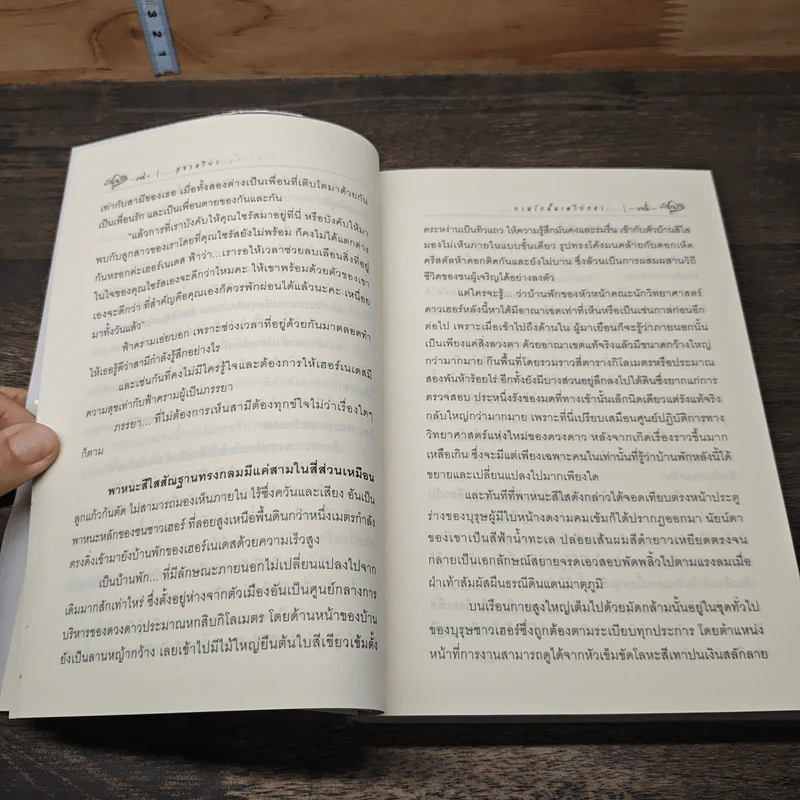 3
2
1
เท่ากับสามีของเธอ เมื่อทั้งสองต่างเป็นเพื่อนที่เติบโตมาด้วยกัน
เป็นเพื่อนรัก และเป็นเพื่อนตายของกันและกัน
"แล้วการที่เราบังคับให้คุณไซรัสมาอยู่ที่นี่ หรือบังคับให้มา
พบกับลูกสาวของเราโดยที่คุณไซรัสยังไม่พร้อม ก็คงไม่ได้แตกต่าง
กันหรอกค่ะเฮอร์เนเดส ฟ้าว่า...เรารอให้เวลาช่วยลบเลือนสิ่งที่อยู่
ในใจของคุณไซรัสเองจะดีกว่าไหมคะ ให้เขาพร้อมด้วยตัวของเขา
เองจะดีกว่า ที่สำคัญคือคุณเองก็ควรพักผ่อนได้แล้วนะคะ เหนื่อย
มาทั้งวันแล้ว"
ฟ้าครามเอ่ยบอก เพราะช่วงเวลาที่อยู่ด้วยกันมาตลอดทำ
ให้เธอรู้ดีว่าสามีกำลังรู้สึกอย่างไร
และเช่นกันที่คงไม่มีใครรู้ใจและต้องการให้เฮอร์เนเดสมี
ความสุขเท่ากับฟ้าครามผู้เป็นภรรยา
ภรรยา... ที่ไม่ต้องการเห็นสามีต้องทุกข์ใจไม่ว่าเรื่องใดๆ
ก็ตาม
พาหนะสีใสสัณฐานทรงกลมมีแค่สามในสี่ส่วนเหมือน
ลูกแก้วก้นตัด ไม่สามารถมองเห็นภายใน ไร้ซึ่งควันและเสียง อันเป็น
พาหนะหลักของชนชาวเฮอร์ ที่ลอยสูงเหนือพื้นดินกว่าหนึ่งเมตรกำลัง
ตรงดิ่งเข้ามายังบ้านพักของเฮอร์เนเดสด้วยความเร็วสูง
เป็นบ้านพัก... ที่มีลักษณะภายนอกไม่เปลี่ยนแปลงไปจาก
เดิมมากสักเท่าไหร่ ซึ่งตั้งอยู่ห่างจากตัวเมืองอันเป็นศูนย์กลางการ
บริหารของดวงดาวประมาณหกสิบกิโลเมตร โดยด้านหน้าของบ้าน
ยังเป็นลานหญ้ากว้าง เลยเข้าไปมีไม้ใหญ่ยืนต้นใบสีเขียวเข้มตั้ง
ตระหง่านเป็นทิวแถว ให้ความรู้สึกมั่นคงและร่มรื่น เข้ากับตัวบ้านสีใส
มองไม่เห็นภายในแบบชั้นเดียว รูปทรงโค้งมนคล้ายกับดอกเห็ด
คริสตัลห้าดอกติดกัน และยังไม่บาน ซึ่งล้วนเป็นการผสมผสานวิถี
ชีวิตของชนผู้เจริญได้อย่างลงตัว
แต่ใครจะรู้... ว่าบ้านพักของหัวหน้าคณะนักวิทยาศาสตร์
ดาวเฮอร์หลังนี้หาได้มีอาณาเขตเท่าที่เห็นหรือเป็นเช่นกาลก่อนอีก
ต่อไป เพราะเมื่อเข้าไปถึงด้านใน ผู้มาเยือนก็จะรู้ว่าภายนอกนั้น
เป็นเพียงแค่สิ่งลวงตา ด้วยอาณาเขตแท้จริงแล้วมีขนาดกว้างใหญ่
กว่ามากมาย กินพื้นที่โดยรวมราวสี่ตารางกิโลเมตรหรือประมาณ
สองพันห้าร้อยไร่ อีกทั้งยังมีบางส่วนอยู่ลึกลงไปใต้ดินซึ่งยากแก่การ
ตรวจสอบ ประหนึ่งรังของมดที่ทางเข้านั้นเล็กนิดเดียวแต่รังแท้จริง
กลับใหญ่กว่ามากมาย เพราะที่นี่เปรียบเสมือนศูนย์ปฏิบัติการทาง
วิทยาศาสตร์แห่งใหม่ของดวงดาว หลังจากเกิดเรื่องราวขึ้นมาก
เหลือเกิน ซึ่งจะมีแต่เพียงเฉพาะคนในเท่านั้นที่รู้ว่าบ้านพักหลังนี้ได้
ขยายและเปลี่ยนแปลงไปมากเพียงใด
และทันทีที่พาหนะสีใสดังกล่าวได้จอดเทียบตรงหน้าประตู
ร่างของบุรุษผู้มีใบหน้างดงามคมเข้มก็ได้ปรากฏออกมา นัยน์ตา
ของเขาเป็นสีฟ้าน้ำทะเล ปล่อยเส้นผมสีดำยาวเหยียดตรงจน
กลายเป็นเอกลักษณ์สยายจรดเอวสอบพัดพลิ้วไปตามแรงลมเมื่อ
ฝ่าเท้าสัมผัสผืนธรณีดินแดนมาตุภูมิ
บนเรือนกายสูงใหญ่เต็มไปด้วยมัดกล้ามนั้นอยู่ในชุดทั่วไป
ของบุรุษชาวเฮอร์ซึ่งถูกต้องตามระเบียบทุกประการ โดยตำแหน่ง
หน้าที่การงานสามารถดูได้จากหัวเข็มขัดโลหะสีเทาปนเงินสลักลาย